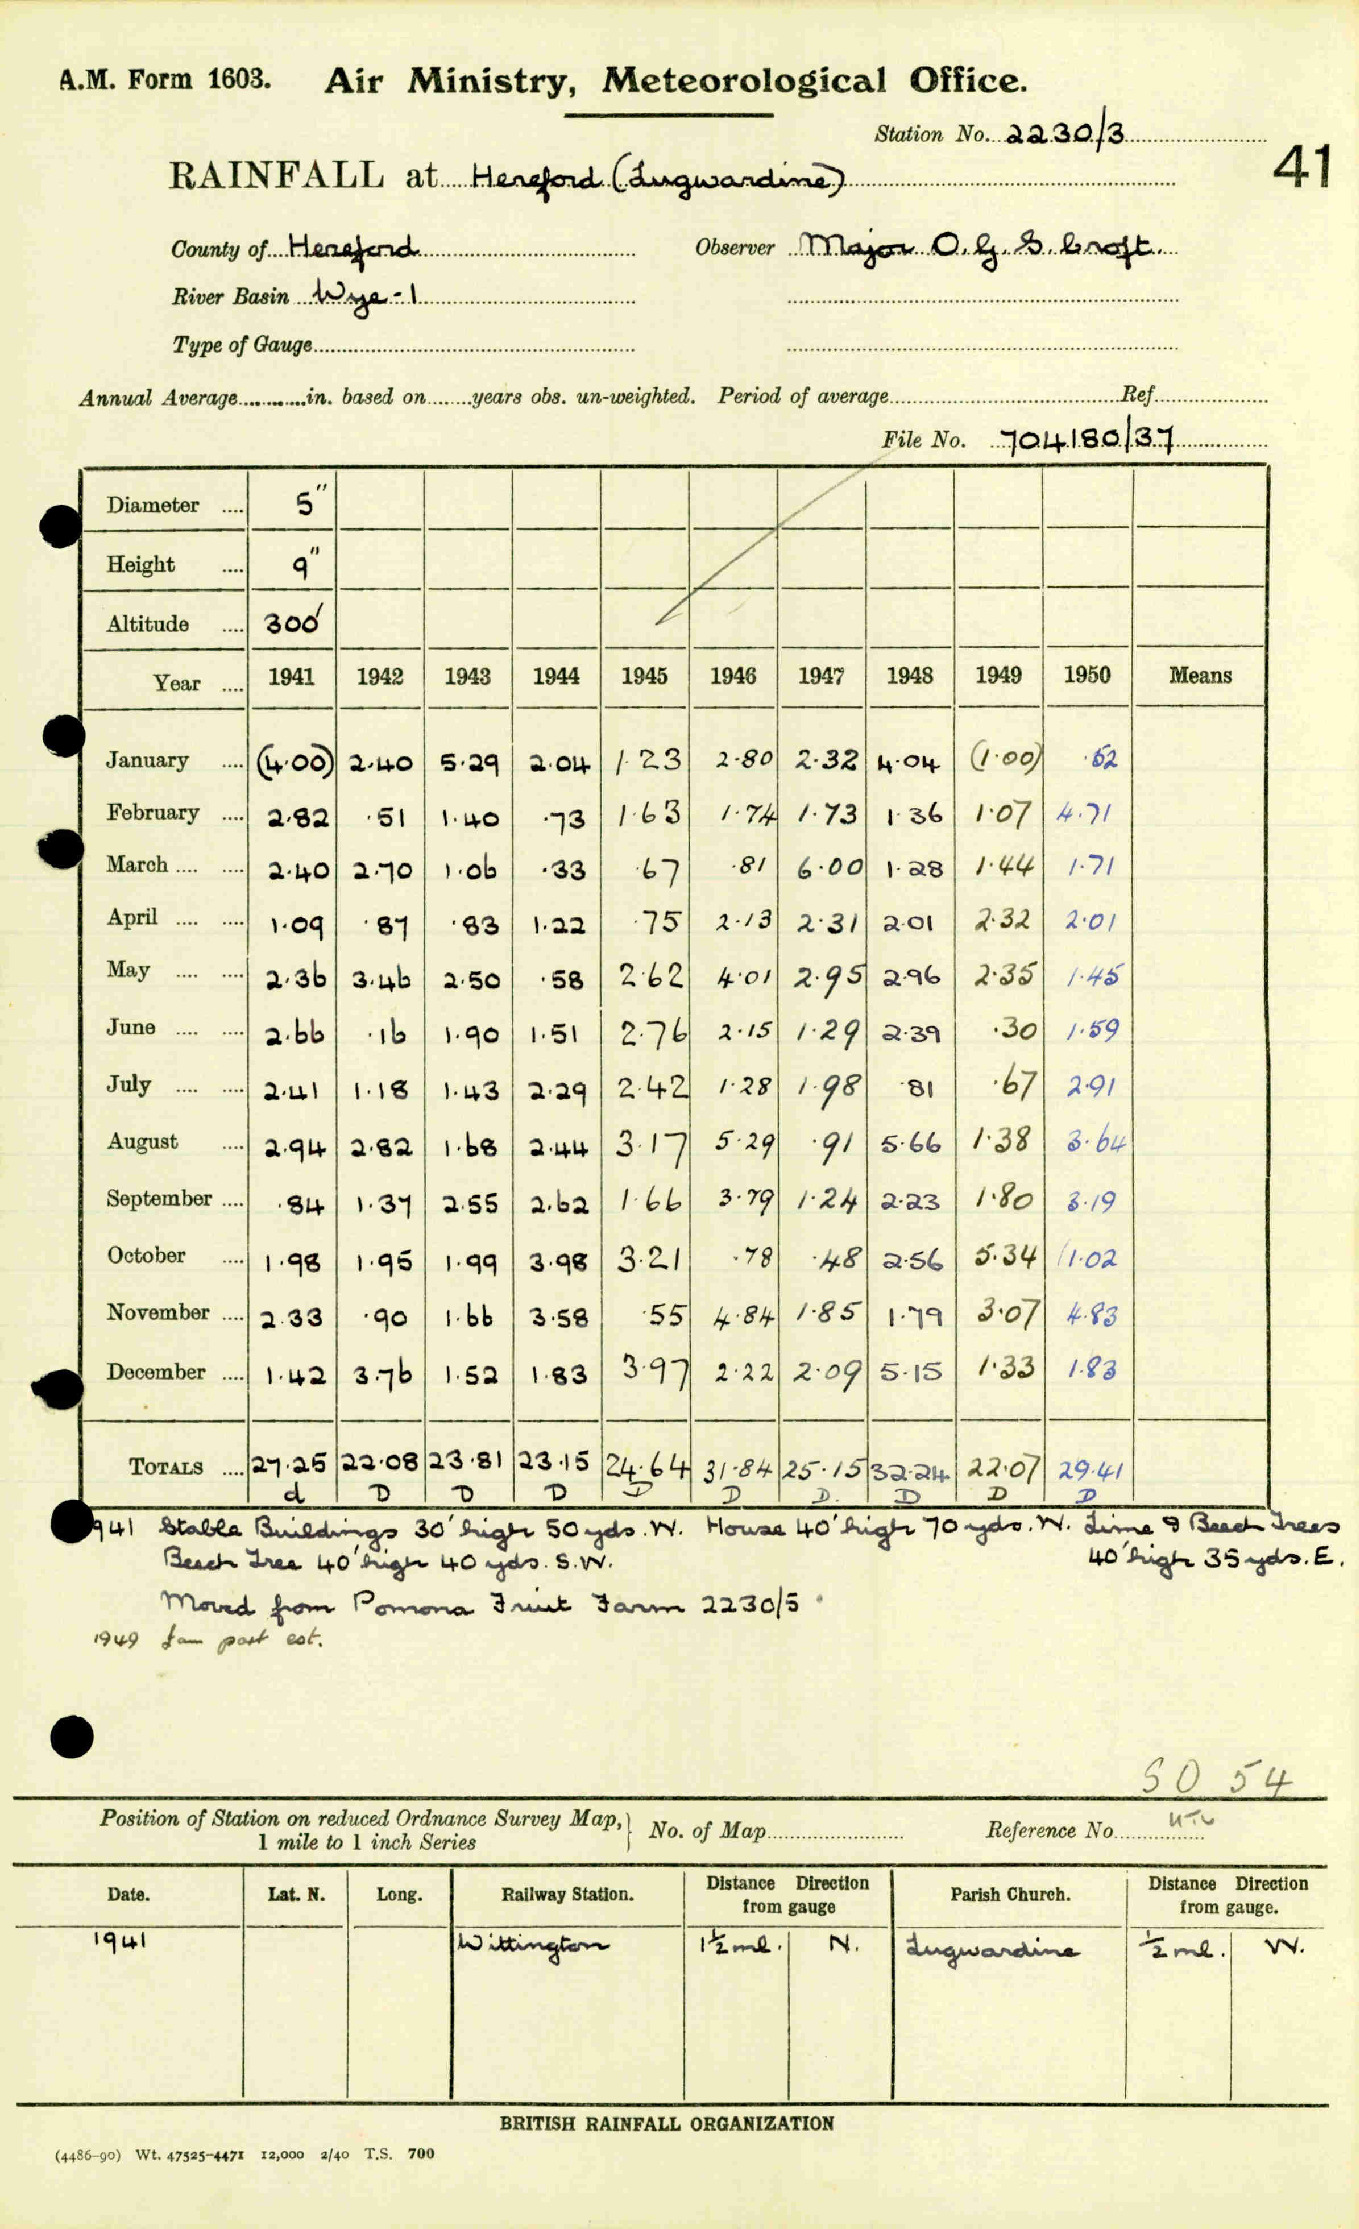 A.M. Form 1603. Air Ministry, Meteorological Office.
Station No. 2230/3
41
RAINFALL at Hereford (Lugwardine)
County of Hereford Observer Major O. G. S. Croft.
River Basin Wye-1
Type of Gauge
Annual Average in. based on years obs. un-weighted. Period of average Ref
File No. 704180/37
Diameter 5"
Height 9"
Altitude 300'
Year 1941 1942 1943 1944 1945 1946 1947 1948 1949 1950 Means
January (4.00) 2.40 5.29 2.04 1.23 2.80 2.32 4.04 (1.00) .52
February 2.82 .51 1.40 .73 1.63 1.74 1.73 1.36 1.07 4.71
March 2.40 2.70 1.06 .33 .67 .81 6.00 1.28 1.44 1.71
April 1.09 .87 .83 1.22 .75 2.13 2.31 2.01 2.32 2.01
May 2.36 3.46 2.50 .58 2.62 4.01 2.95 2.96 2.35 1.45
June 2.66 .16 1.90 1.51 2.76 2.15 1.29 2.39 .30 1.59
July 2.41 1.18 1.43 2.29 2.42 1.28 1.98 .81 .67 2.91
August 2.94 2.82 1.68 2.44 3.17 5.29 .91 5.66 1.38 3.64
September .84 1.37 2.55 2.62 1.66 3.79 1.24 2.23 1.80 3.19
October 1.98 1.95 1.99 3.98 3.21 .78 .48 2.56 5.34 1.02
November 2.33 .90 1.66 3.58 .55 4.84 1.85 1.79 3.07 4.83
December 1.42 3.76 1.52 1.83 3.97 2.22 2.09 5.15 1.33 1.83
TOTALS 27.25 22.08 23.81 23.15 24.64 31.84 25.15 32.24 22.07 29.41
d D D D D D D. D D D
941 Stable Buildings 30' high 50 yds. W. House 40' high 70 yds. W. Lime & Beech Trees
Beech Tree 40' high 40 yds. S.W. 40' high 35 yds. E.
Moved from Pomona Fruit Farm 2230/5
1949 Jan part est.
SO 54
Position of Station on reduced Ordnance Survey Map, } No. of Map Reference No.
1 mile to 1 inch Series
Date. Lat. N. Long. Railway Station. Distance from gauge Direction Parish Church. Distance from gauge. Direction
1941 Wittington 1½ ml. N. Lugwardine ½ ml. W.
BRITISH RAINFALL ORGANIZATION
(4486-90) Wt. 47525-4471 12,000 2/40 T.S. 700